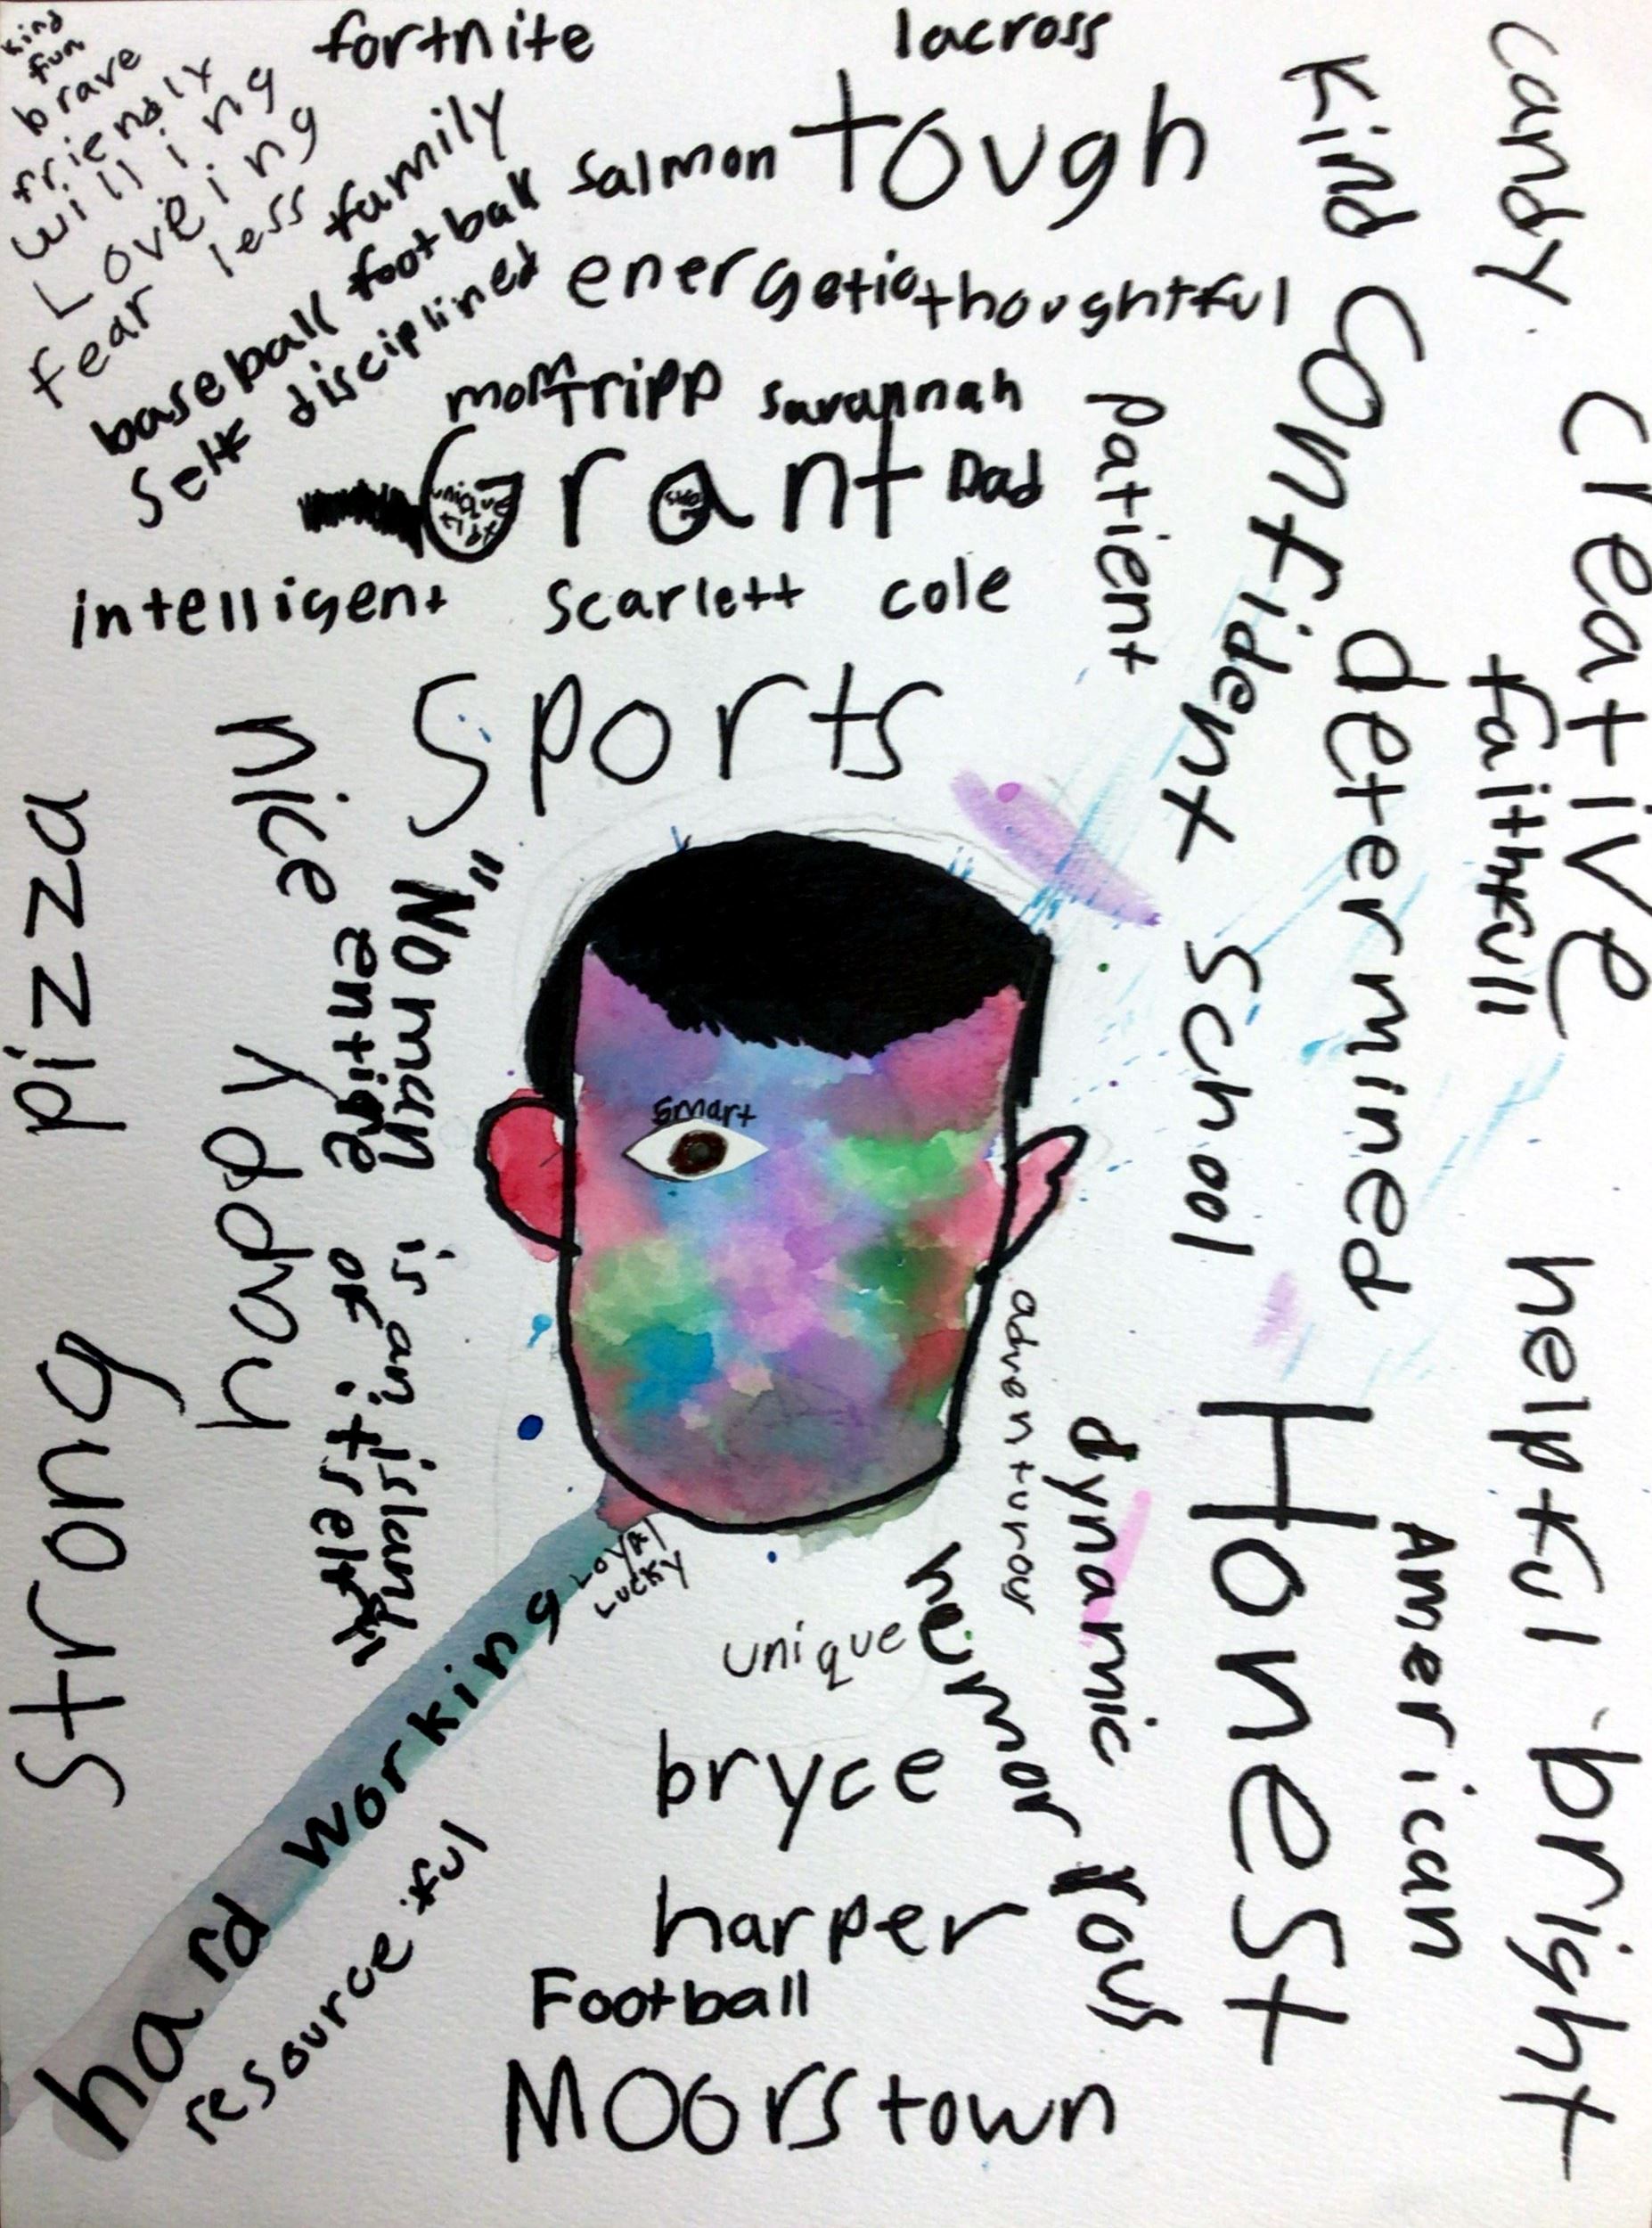 kind
fun
brave
friendly
willing
Loveing
fear less
fortnite
lacross
family
salmon
tough
baseball football
self disciplined
energetic
thoughtful
kind
candy
mom
Tripp
savannah
Grant
unique
Dad
intelligent
Scarlett
cole
patient
confident
creative
Sports
determined
faithfull
nice
pizza
"No man is an island
entire of itself"
School
happy
smart
strong
helpful
adventurous
dynamic
Honest
American
bright
Loyal
Lucky
hard working
unique
heumorrous
bryce
resourceful
harper
Football
Moorstown